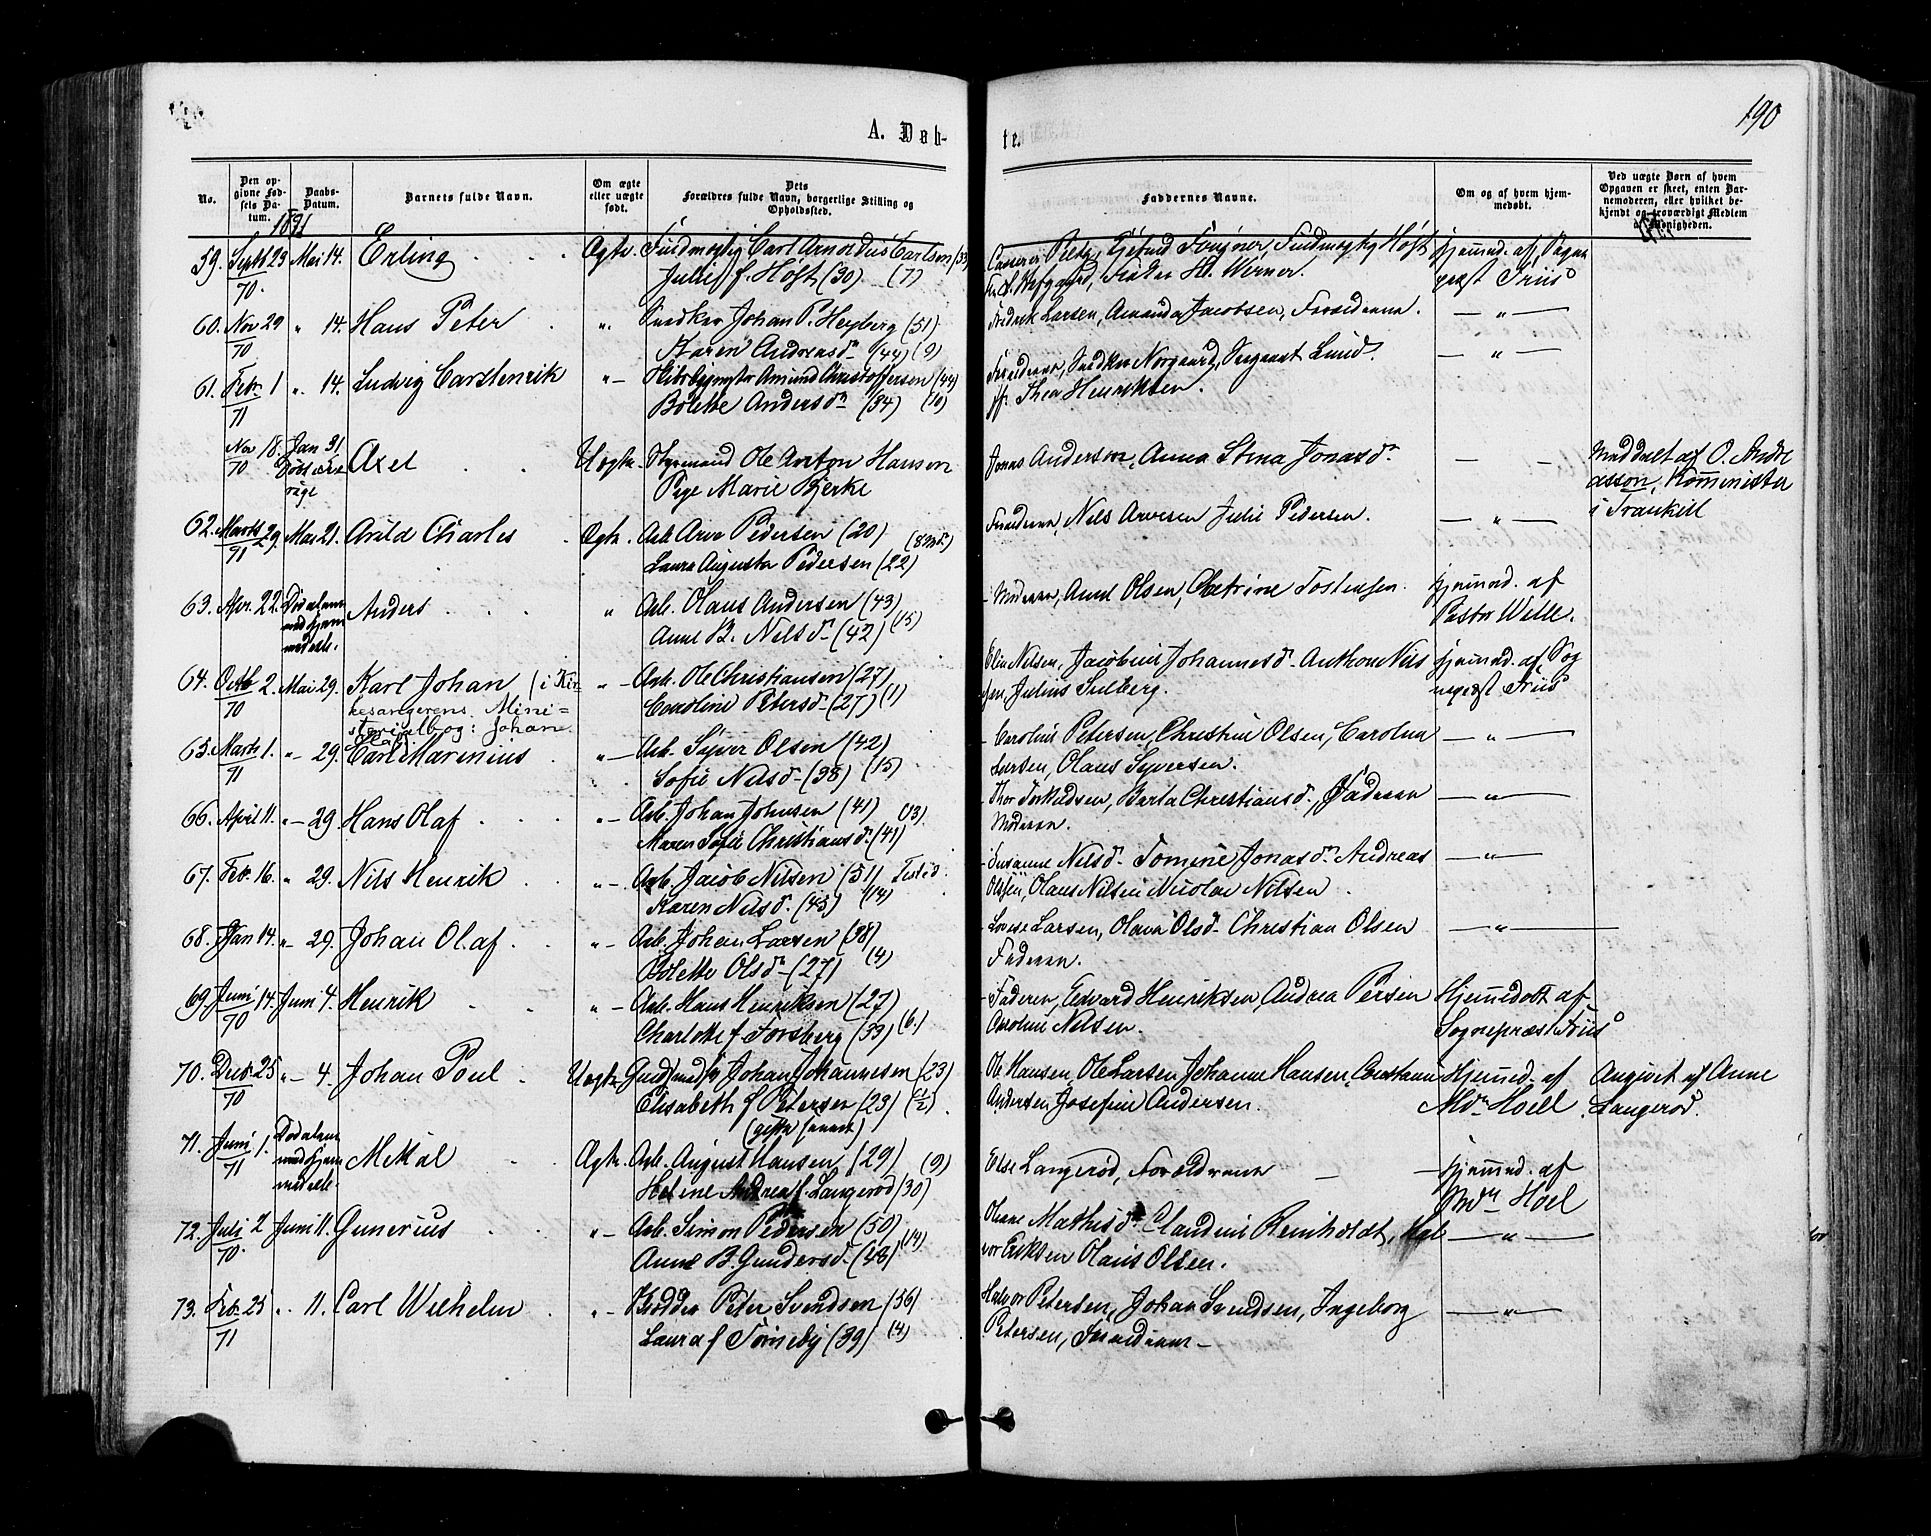 190
A. Døb-
te.
No.
Den opgivne Fødsels Datum.
Daabs-Datum.
Barnets fulde Navn.
Om ægte eller uægte født.
Dets Forældres fulde Navn, borgerlige Stilling og Opholdssted.
Faddernes Navne.
Om og af hvem hjemmedøbt.
Ved uægte Børn af hvem Opgaven er skeet, enten Barnemoderen, eller hvilket bekjendt og troværdigt Medlem af Menigheden.
1871
59. Septb 23 Mai 14. Erling Ægte. Carl Arnoldus Carlsen (33)
70. Julie f. Høft (30) (7)
Høft hjemmd. af Sogne
H. Werner. præst Friis
60. Nov 29 " 14. Hans Peter " Snedker Johan P. Heyberg (51) Fredrik Larsen, Amanda Jacobsen, Forældrene. — " —
70 Karen Andreasdr (44) (9)
61. Febr. 1 " 14. Ludvig Carstenrik " — Amund Christoffersen (44) Forældrene, Snedker Norgaard, Sergeant Lund. — " —
71 Bolette Andersdr (34) (10) Thea Henriksen.
Nov 18. Jan 31 Axel Uægte. Styrmand Ole Anton Hansen Jonas Anderson, Anna Stina Jonasdr — — Meddelt af O. Andre
70 Døbt i Sve Pige Marie Bjerke asson, Komminister
rige i Trankill
62. Marts 29. Mai 21. Arild Charles Ægte. Arb. Arve Pedersen (20) (8 Md.) Forældrene, Nils Arvesen Julie Pedersen. — " —
71 Laura Augusta Pedersen (22)
63. Apr. 22. Døbt alene ved hjemmedøb. Anders " Arb. Olaus Andersen (43) Moderen, Anne Olsen, Cathrine Tostensen. hjemmd. af
Anne B. Nilsdr (42) (15) Pastor Welle.
64. Octb 2. Mai 29. Karl Johan (i Kir " — Arb. Ole Christiansen (27) Elin Nilsen, Jacobine Johannesd. Anthon Nils hjemmd. af Sog
70 kesangerens Mini= Caroline Petersd. (27) (1) sen, Julius Sulberg. nepræst Friis
sterialbog: Johan
65. Marts 1. " — 29. Carl Marinius " — Arb. Syver Olsen (42) Caroline Petersen, Christine Olsen, Carolina — " —
71 Sofie Nilsd. (38) (15) Larsen, Olaus Syversen.
66. April 11. " — 29. Hans Olaf " — Arb. Johan Johnsen (41) (13) Thor Torkildsen, Berta Christiansd., Faderen — " —
Maren Sofie Christiansd. (41) Moderen.
67. Feb. 16. " 29. Nils Henrik " — Arb. Jacob Nilsen (51) Tisted. Susanne Nilsd. Tomine Jonasdr Andreas — " —
Karen Nilsd. (43) (14) Olsen, Olaus Nilsen Nicolai Nilsen
68. Jan 14. " — 29. Johan Olaf " — Arb. Johan Larsen (38) Lovise Larsen, Olava Olsd. Christian Olsen — " —
Bolette Olsdr (27) (4) Faderen.
69. Juni 14. Juni 4. Henrik " — Arb. Hans Henriksen (27) Faderen, Edvard Henriksen, Andrea Persen Hjemmedøbt af
70 Charlotte f. Forsberg (33) (6.) Caroline Nilsen. Sognepræst Friis
70. Decb 25 " — 4. Johan Poul Uægte. Johan Johannesen (23) Ole Hansen, Ole Larsen, Johanne Hansen, Christian Hjemmd. af Angivet af Anne
70 Elisabeth f. Petersen (23) Andersen, Josefine Andersen. Mdr. Hoell Langerød.
71. Juni 1. Døbt alene ved hjemmedøb. Mekal Ægte. Arb. August Hansen (29) (9) Else Langerød, Forældrene — hjemmd. af
71 Heline Andrea f. Langerød (30) Mdr. Hoel
72. Juli 2 Juni 11. Gunerius " — Arb. Simon Pedersen (50) Oleane Mathisd. Claudine Reinholdt, Hal — " —
70. Anne B. Gundersd. (48) (14) vor Eriksen Olaus Olsen.
73. Feb. 25 " 11. Carl Wilhelm " — Peter Svendsen (36) Halvor Petersen, Johan Svendsen, Ingeborg — " —
71 Laura f. Torneby (39) (4) Petersen, Forældrene —